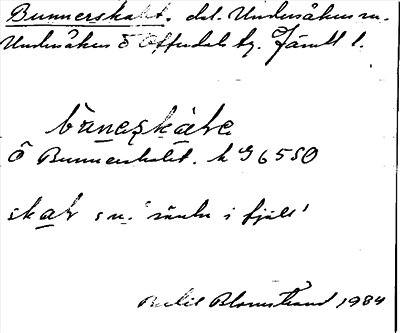 Bunnerskalet. del. Undersåkers sn.
Undersåkers o Offerdals tg. Jämtl l.
bùnexskàɫe
Ö Bunnerskalet. h 96550
skaɫ s n. 'sänka i fjäll'
Blomstrand 1984